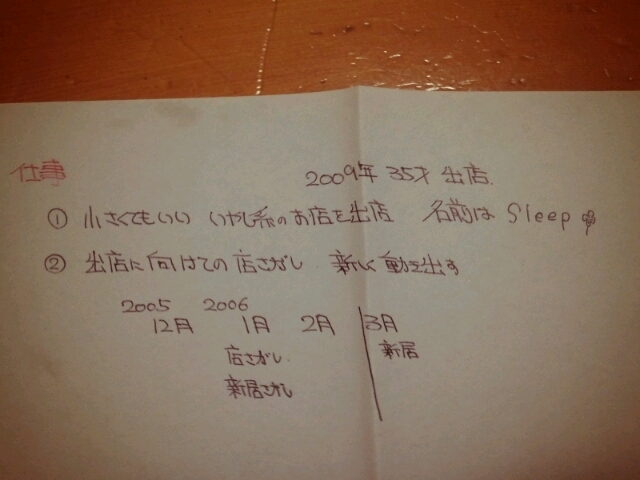 仕事
2009年 35才 出店.
① 小さくてもいい いやし系のお店を出店 名前は Sleep
② 出店に向けての店さがし 新しく動き出す
2005 2006
12月 1月 2月 3月
店さがし. 新居
新居さがし